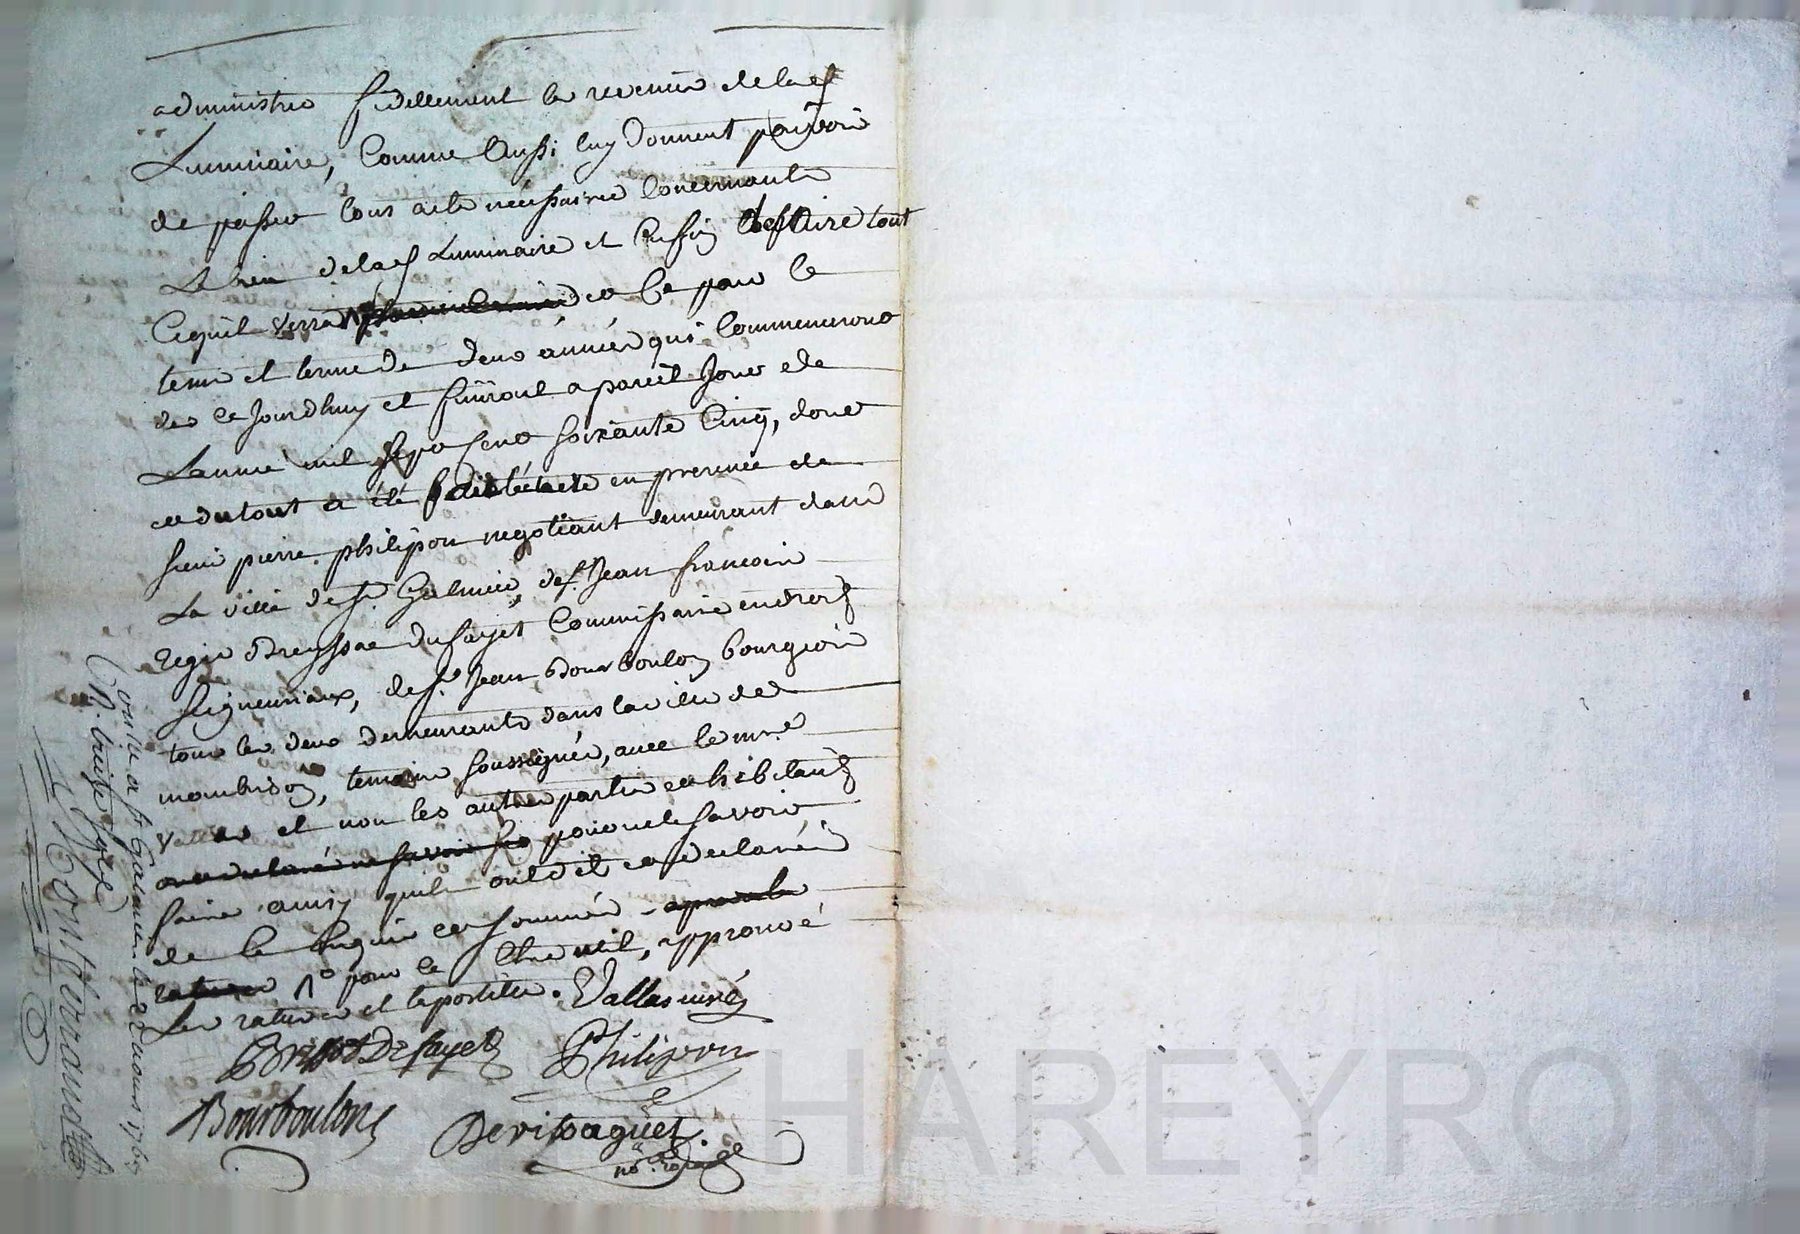 administrer fidellement le revenue de lad
Luminaire, Comme aussi luy donnent pouvoir
de passer tous acte nécéssaires concernants
Le bien de lad Luminaire et enfin de faire tout
Cequil verra et ce pour le
tems et terme de deux années qui commenceront
des ce Jourdhuy et finiront a pareil Jour de
Lannée mil sept cent soixante Cinq, dont
et du tout a été fait acte en presence de
sieur pierre philipon negotiant demeurant dans
La ville de st Galmier, de sr Jean francois
regis Dufayet Commissaire en droits
seigneuriaux, de sr Jean Bourboulon bourgeois
tous les deux demeurants dans la ville de
montbrison, temoins soussignés, avec le
et non les autres parties et habitants
pour ne le savoir
faire ainsy quils ont dit et declaré
de ce enquis et sommés
1o pour le approuvé
Les ratures et lapostille. Vallas
Dufayet Philipon
Bourboulon Devibaguet
no.re royal
Con.lé a st Galmier le 22 1763
R. treize sols
Montferrand
HAREYRON